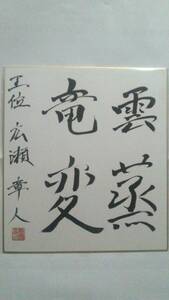 雲蒸
竜変
王位 広瀬章人